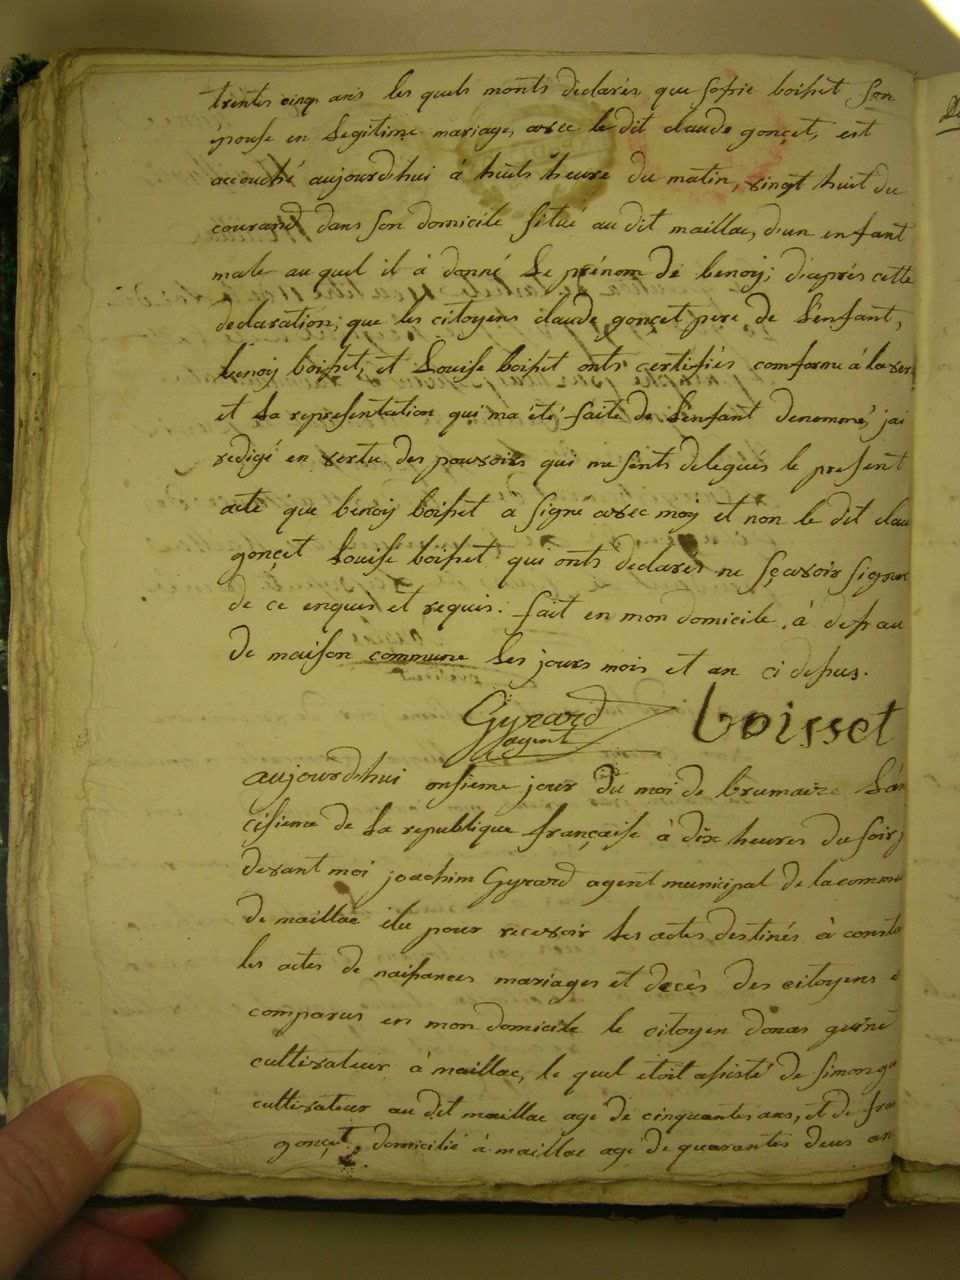 trentes cinqs ans les quels monts declarés que sofie boisset son
épouse en Legitime mariage, avec le dit claude gonçet, est
accouché aujourdhui à huits heure du matin, vingt huit du
courand dans son domicile situé au dit maillac, dun enfant
male au quel il à donné Le prénom de benoij; diaprès cette
declaration; que les citoyens claude gonçet pere de L'enfant,
benoij boisset, et Louise boisset onts certifiés comforme à la ver
et La representation qui ma été faite de L'enfant denommé, jai
redigé en vertu des pouvoirs qui me sonts delegués le present
acte que benoij boisset a signé avec moy et non le dit clau
gonçet Louise boisset qui onts declarés ne sçavoir signer
de ce enquis et requis. fait en mon domicile, à defau
de maison commune Les jours mois et an ci dessus.
Gyrard boisset
agent
aujourdhui onsieme jour du moi de brumaire L'an
cisieme de La republique française à dix heures du soir,
devant moi joachim Gyrard agent municipal de la commu
de maillac élu pour recevoir Les actes destinés à consta
les actes de naissances mariages et decès des citoyens
comparus en mon domicile le citoyen donas guiné
cultivateur à maillac, le quel étoit assisté de simon gu
cultivateur au dit maillac agé de cinquantes ans, et de fran
gonçet, domicilié à maillac agé de quarantes deus an